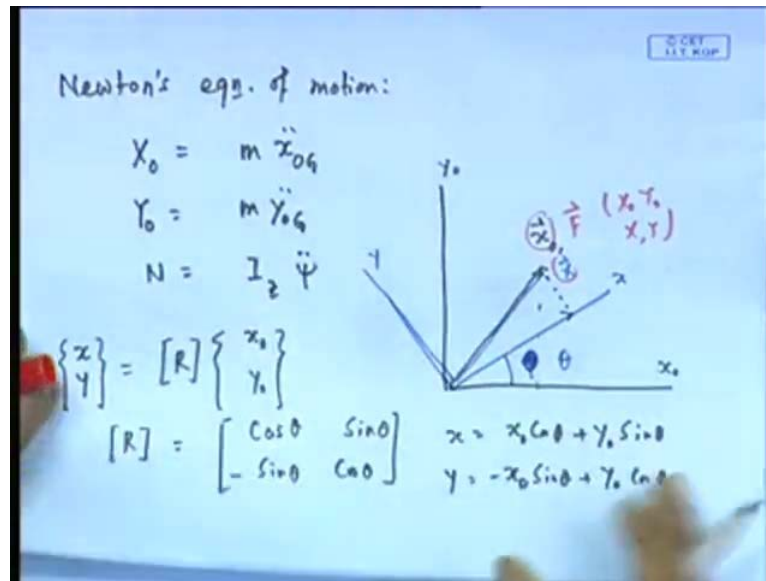 © CET
I.I.T. KGP
Newton's eqn. of motion:
X₀ = m ẍ₀G
Y₀ = m ÿ₀G
N = I_z ψ̈
{x y} = [R] {x₀ y₀}
[R] = [Cosθ Sinθ
- Sinθ Cosθ]
Y₀
F⃗ (X₀ Y₀
X, Y)
x⃗₀
x⃗
y
x
θ
x₀
x = x₀ Cosθ + y₀ Sinθ
y = -x₀ Sinθ + y₀ Cosθ